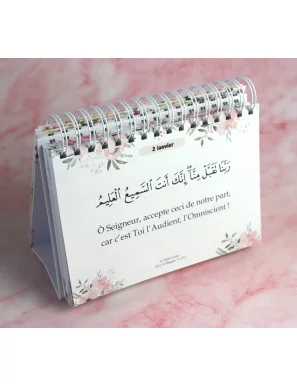 2 janvier
رَبَّنَا تَقَبَّلْ مِنَّا إِنَّكَ أَنتَ السَّمِيعُ الْعَلِيمُ
Ô Seigneur, accepte ceci de notre part,
car c'est Toi l'Audient, l'Omniscient !